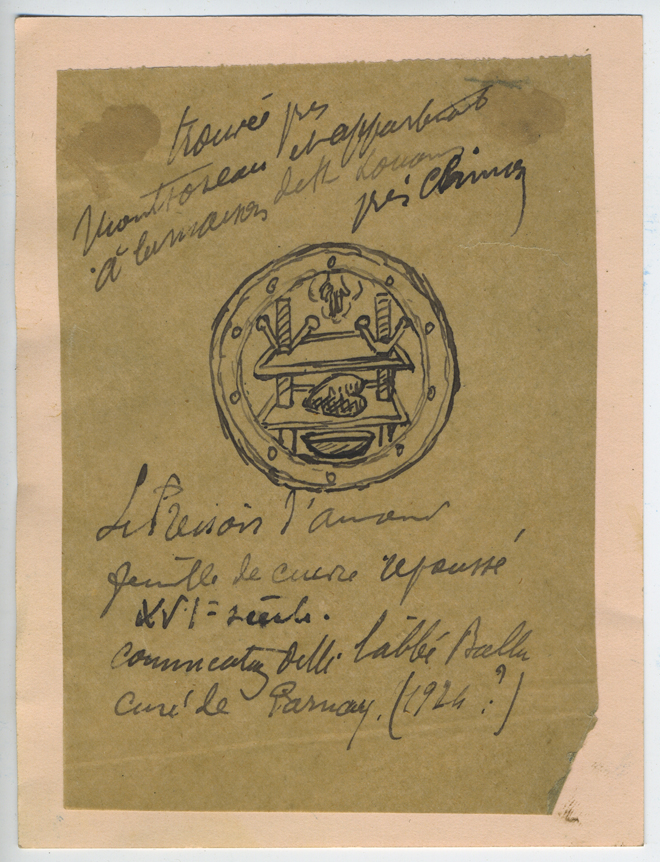 trouvée près
Montsoreau et appartenant
à la maison de M Louans
près Chinon
Le Pressoir d'amour
feuille de cuivre repoussé
XVIe siècle.
communication de M. l'abbé Ballu
curé de Parnay. (1924 ?)